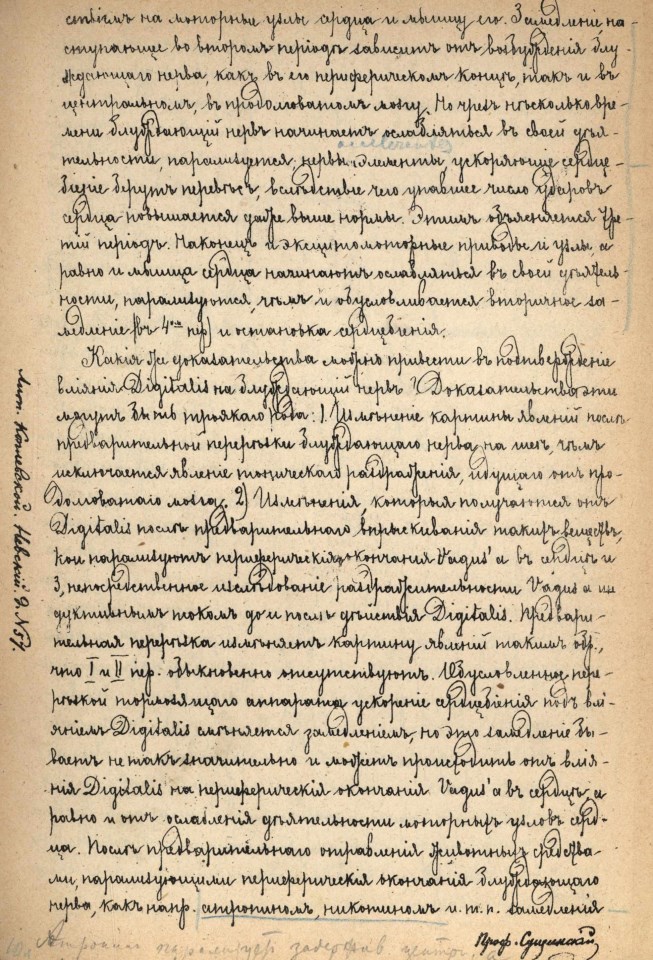 ствіемъ на моторные узлы сердца и мышцу его. Замедленіе на-
ступающее во второмъ періодѣ зависитъ отъ возбужденія блу-
ждающаго нерва, какъ въ его периферическомъ концѣ, такъ и въ
центральномъ, въ продолговатомъ мозгу. Но чрезъ нѣсколько вре-
мени блуждающій нервъ начинаетъ ослабляться въ своей дѣя-
тельности, парализуется, нервн. элементы, ускоряющіе сердце-
біеніе берутъ перевѣсъ, вслѣдствіе чего упавшее число ударовъ
сердца повышается даже выше нормы. Этимъ объясняется тре-
тій періодъ. Наконецъ и эксцитомоторные приводы и узлы, а
равно и мышца сердца начинаютъ ослабляться въ своей дѣятель-
ности, парализуются, чѣмъ и обусловливается вторичное за-
медленіе (въ 4омъ пер) и остановка сердцебіенія.
Какія же доказательства можно привести въ подтвержденіе
вліянія Digitalis на блуждающій нервъ? Доказательства эти
могутъ быть троякаго рода: 1) Измѣненіе картины явленій послѣ
предварительной перерѣзки блуждающаго нерва на шеѣ, чѣмъ
исключается явленіе тоническаго раздраженія, идущаго отъ про-
долговатаго мозга. 2) Измѣненія, которыя получаются отъ
Digitalis послѣ предварительнаго впрыскиванія такихъ веществъ,
кои парализуютъ периферическія окончанія Vagus'a въ сердцѣ и
3, непосредственное изслѣдованіе раздражительности Vagus'a ин
дуктивнымъ токомъ до и послѣ дѣйствія Digitalis. Предвари-
тельная перерѣзка измѣняетъ картину явленій такимъ обр.,
что I и II пер. обыкновенно отсутствуютъ. Обусловленное пере-
рѣзкой тормозящаго аппарата ускореніе сердцебіенія подъ влі-
яніемъ Digitalis смѣняется замедленіемъ, но это замедленіе бы-
ваетъ не такъ значительно и можетъ происходить отъ влія-
нія Digitalis на периферическія окончанія Vagus'a въ сердцѣ, а
равно и отъ ослабленія дѣятельности моторныхъ узловъ серд-
ца. Послѣ предварительнаго отравленія животныхъ средства-
ми, парализующими периферическія окончанія блуждающаго
нерва, какъ напр. атропиномъ, никотиномъ и т. п. замедленія
Лит. Коневской. Невскій. д. N57.
Проф. Сущинскій
Атропинъ парализуетъ